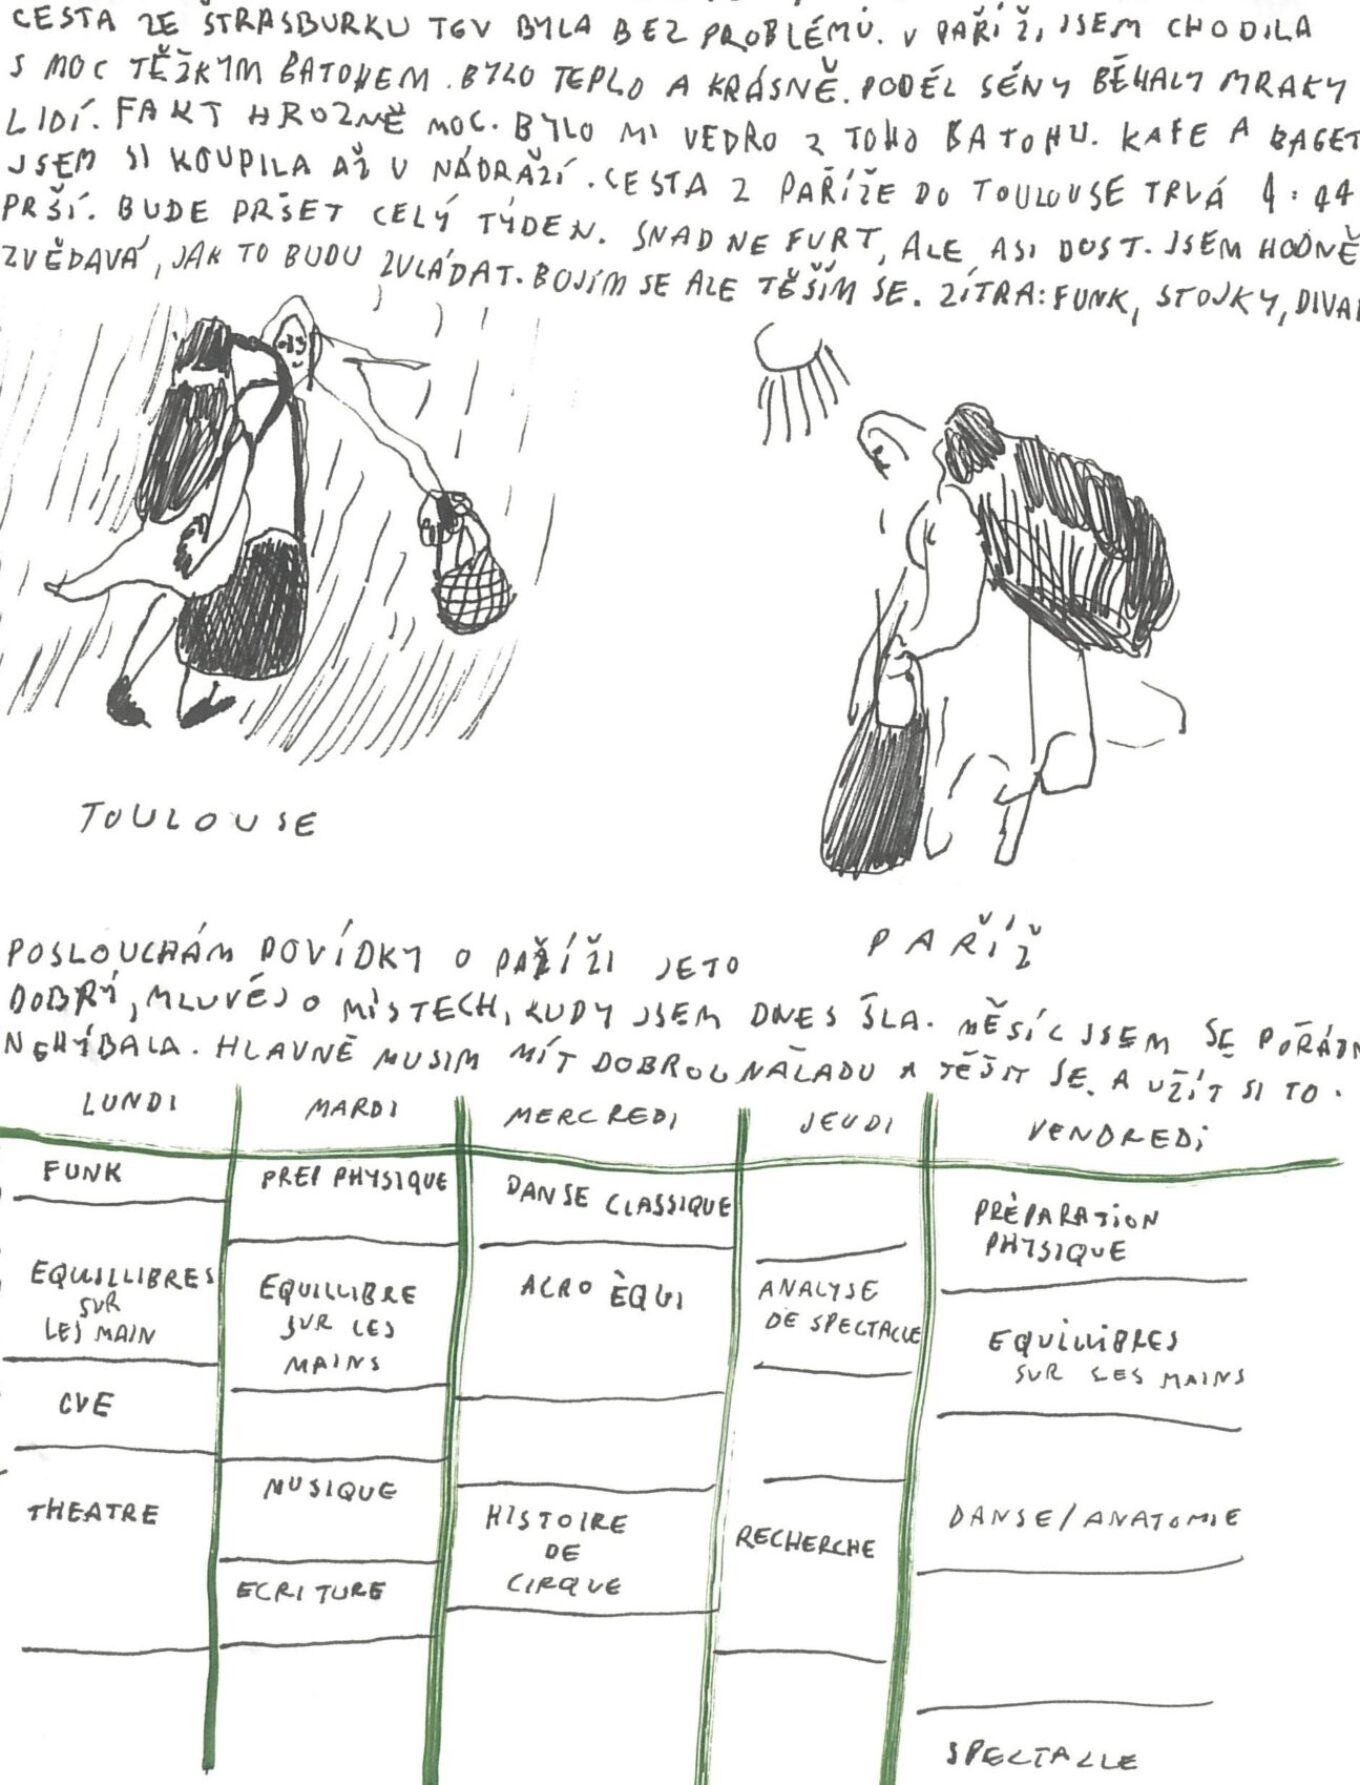 CESTA ZE ŠTRASBURKU TGV BYLA BEZ PROBLÉMŮ. V PAŘÍŽI JSEM CHODILA
S MOC TĚŽKÝM BATOHEM. BYLO TEPLO A KRÁSNĚ. PODÉL SÉNY BĚHALY MRAKY
LIDÍ. FAKT HROZNĚ MOC. BYLO MI VEDRO Z TOHO BATOHU. KAFE A BAGET
JSEM SI KOUPILA AŽ V NÁDRAŽÍ. CESTA Z PAŘÍŽE DO TOULOUSE TRVÁ 4:44
PRŠÍ. BUDE PRŠET CELÝ TÝDEN. SNAD NE FURT, ALE ASI DOST. JSEM HODNĚ
ZVĚDAVÁ, JAK TO BUDU ZVLÁDAT. BOJÍM SE ALE TĚŠÍM SE. ZÍTRA: FUNK, STOJKY, DIVAD
TOULOUSE
PAŘÍŽ
POSLOUCHÁM POVÍDKY O PAŘÍŽI JETO
DOBRÝ, MLUVĚJ O MÍSTECH, KUDY JSEM DNES ŠLA. MĚSÍC JSEM SE POŘÁDN
NEHÝBALA. HLAVNĚ MUSIM MÍT DOBROU NÁLADU A TĚŠIT SE. A UŽÍT SI TO.
LUNDI MARDI MERCREDI JEUDI VENDREDI
FUNK
EQUILLIBRES
SUR
LES MAIN
CVE
THEATRE
PREP PHYSIQUE
EQUILLIBRE
SUR LES
MAINS
MUSIQUE
ECRITURE
DANSE CLASSIQUE
ACRO ÈQUI
HISTOIRE
DE
CIRQUE
ANALYSE
DE SPECTACLE
RECHERCHE
PRÈPARATION
PHYSIQUE
EQUILIBRES
SUR LES MAINS
DANSE/ANATOMIE
SPECTACLLE